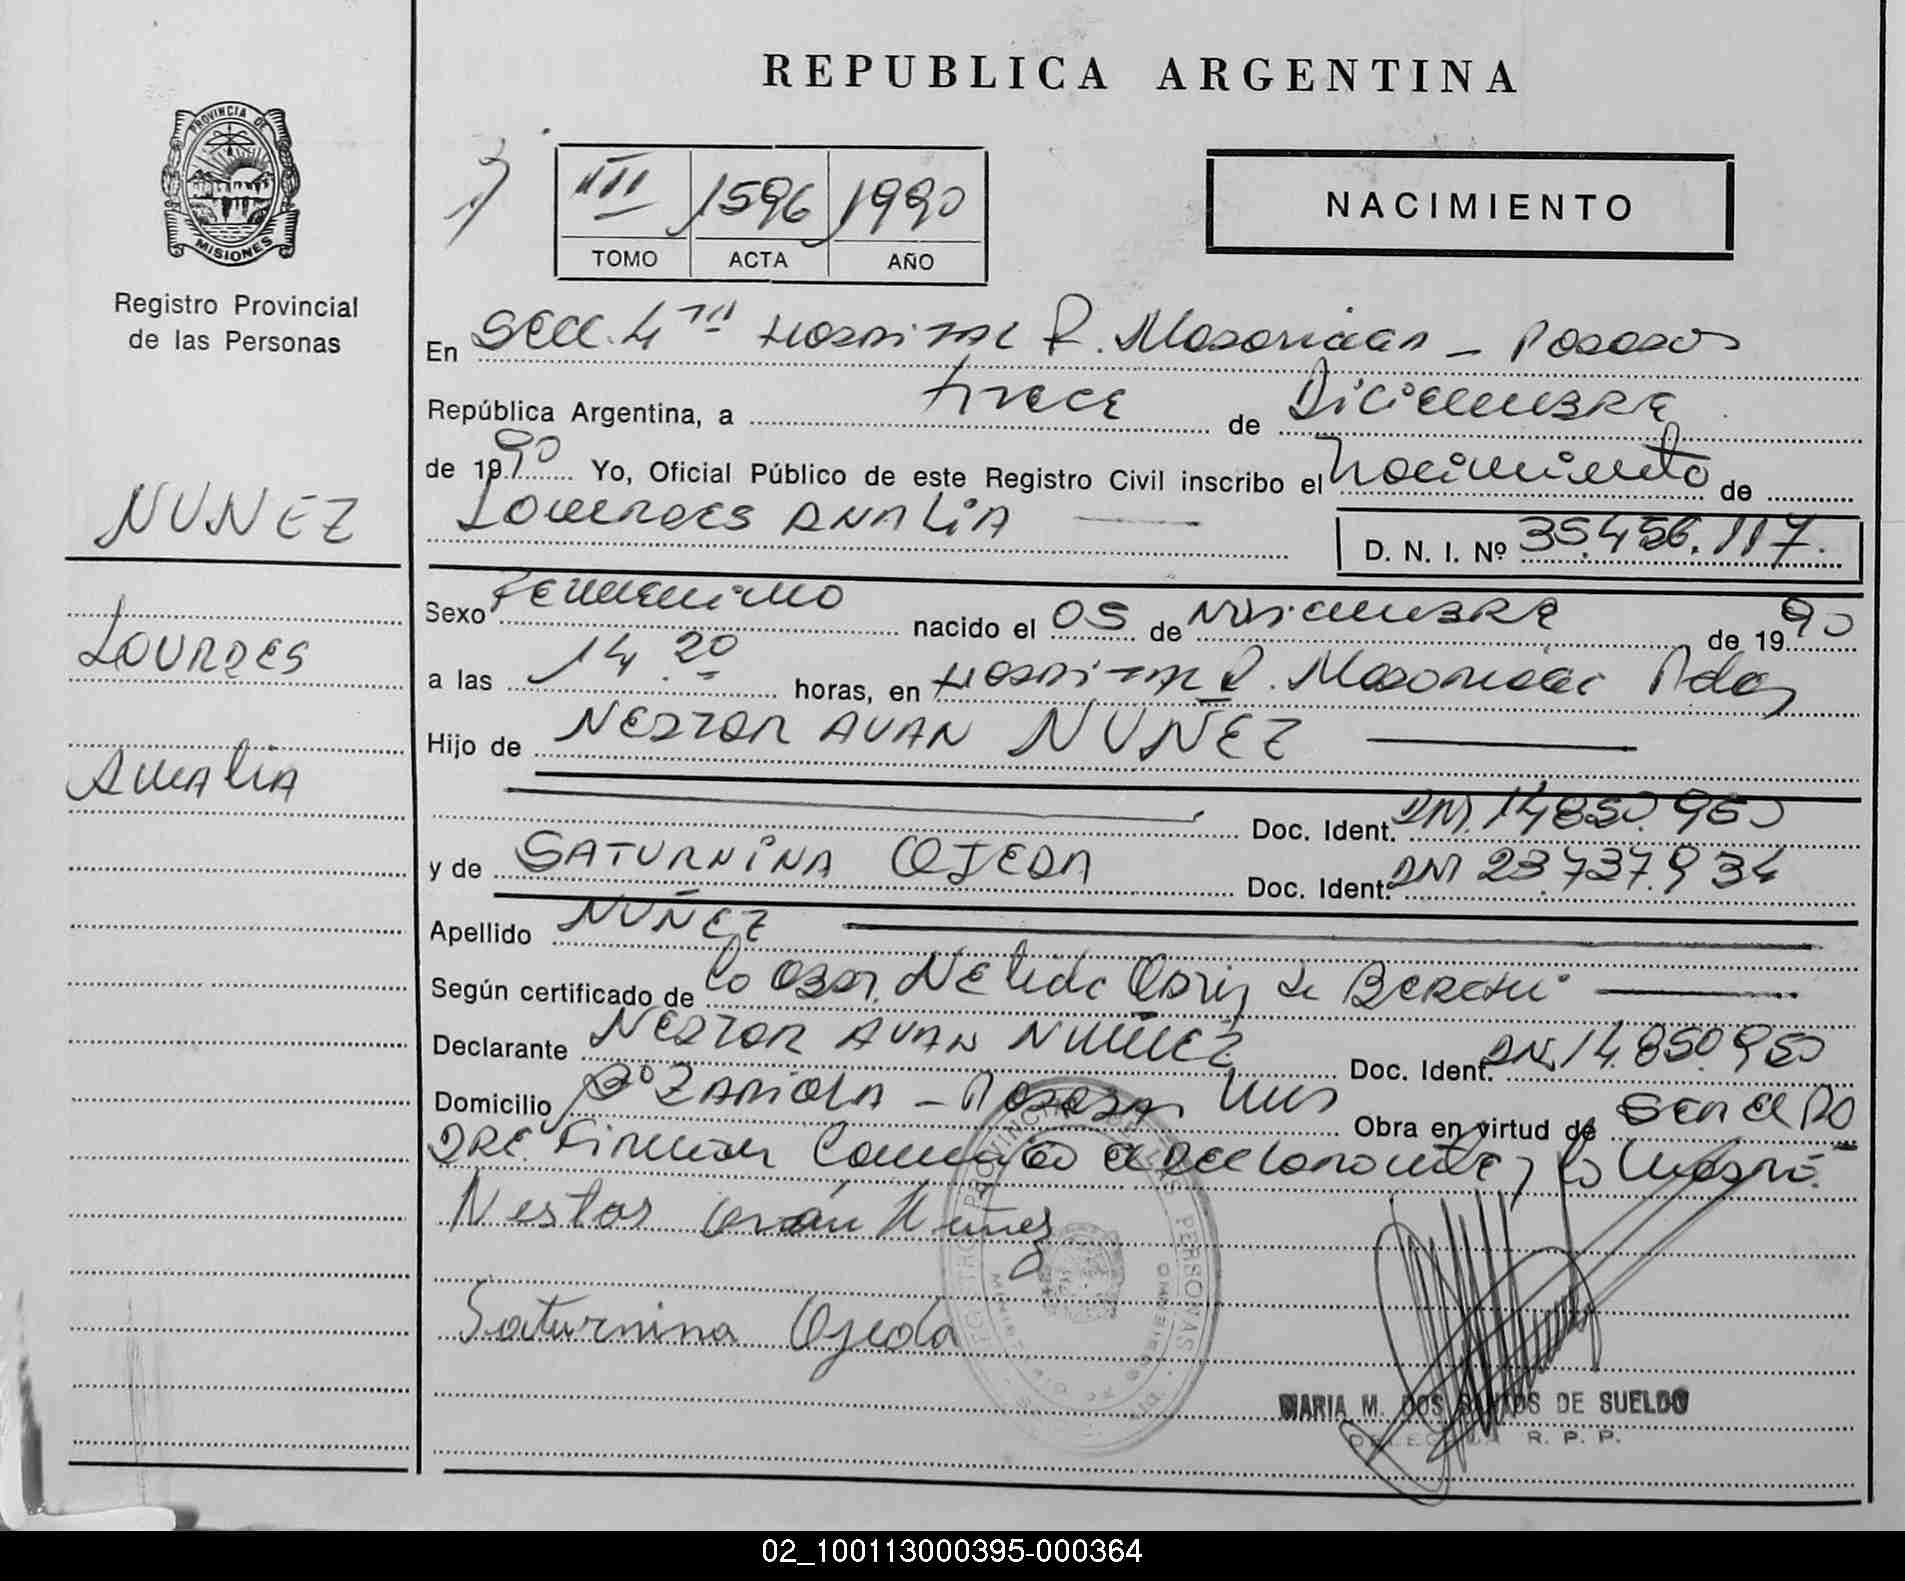 REPUBLICA ARGENTINA
PROVINCIA DE
MISIONES
Registro Provincial
de las Personas
III 1596 1990
TOMO ACTA AÑO
NACIMIENTO
En Secc. 4ta Hospital R. Madariaga - Posadas
República Argentina, a trece de Diciembre
de 1990 Yo, Oficial Público de este Registro Civil inscribo el Nacimiento de
NUÑEZ
LOURDES ANALIA
D. N. I. Nº 35.456.117.
LOURDES
ANALIA
Sexo Femenino nacido el 05 de Noviembre de 1990
a las 14.20 horas, en Hospital R. Madariaga Pdas
Hijo de NESTOR IVAN NUÑEZ
Doc. Ident. DNI. 14.850.950
y de SATURNINA OJEDA Doc. Ident. DNI 23.737.934
Apellido NUÑEZ
Según certificado de la Obst. Nelida de
Declarante NESTOR IVAN NUÑEZ Doc. Ident. DNI. 14.850.950
Domicilio Bº - Posadas Mnes Obra en virtud de ser el PA
DRE. Firman Conmigo el declarante y la Madre.
Nestor Iván Nuñez
Saturnina Ojeda
REGISTRO PROVINCIAL DE LAS PERSONAS
MARIA M. DOS SANTOS DE SUELDO
DELEGADA R. P. P.
02_100113000395-000364